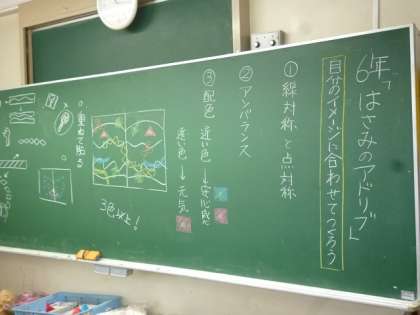 6年「はさみのアドリブ」
自分のイメージに合わせてつくろう
①線対称と点対称
②アンバランス
③配色 近い色→安心感
遠い色→元気
3色以上!